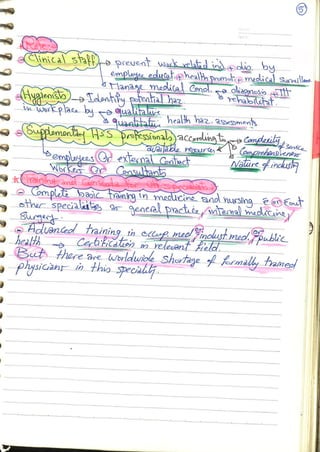 ⑤
Roles:-
Clinical staff → prevent work related inj + dis by
employee educat + health promot + medical surveillance
+ Manage medical Cond. → diagnosis + ttt
rehabilitat.
Hygienists → Identify potential haz.
in workplace by → qualitative
quantitativ. health haz. assessments
Supplementary H&S professionals according to → Complexity
of service
available resources Comprehensiveness
Nature of industry
→ employees OR external Contact
workers or Consultants
Training and
→ Complete basic training in medicine and nursing
other specialities or general practice, internal medicine,
Surgery.
→ Advanced training in occup med, indust med, or public
health → Certification in relevant field.
But there are worldwide shortage of formally trained
physicians in this speciality.